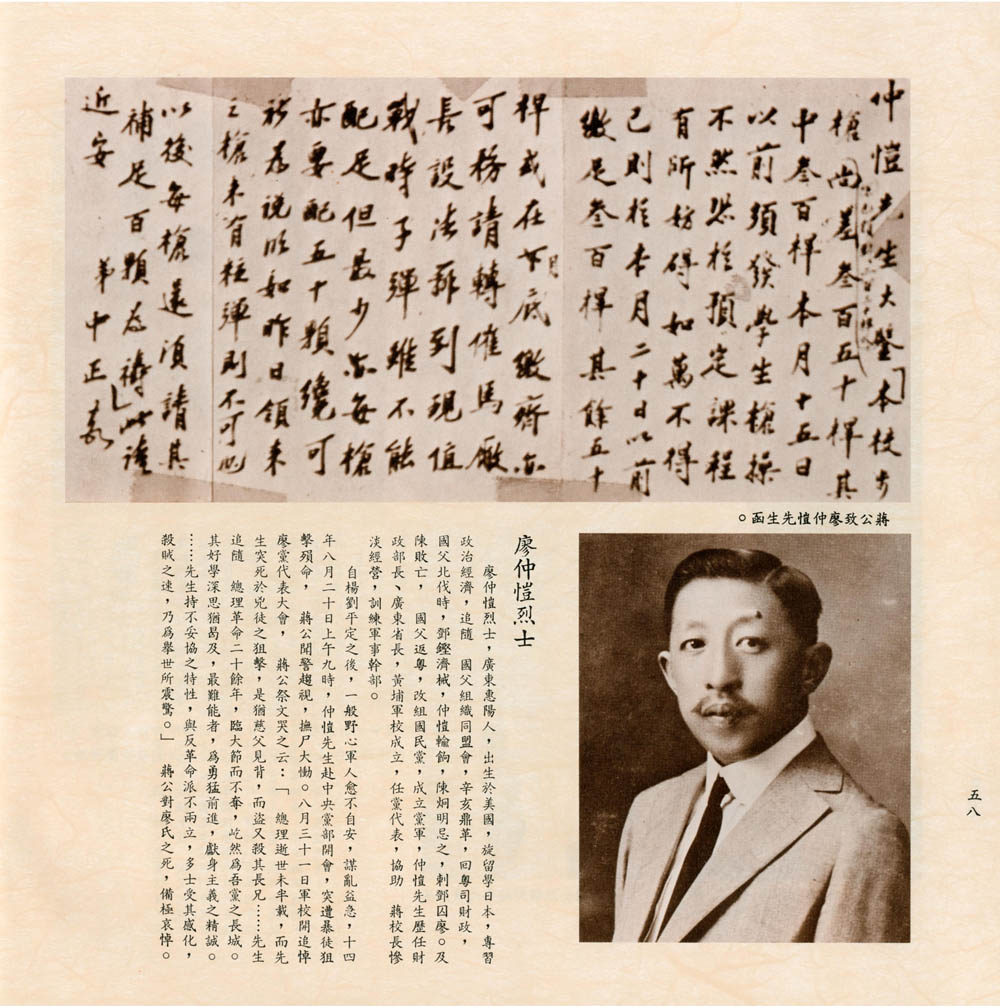 仲愷先生大鑒「本校步
槍尚差叁百五十桿其
中叁百桿本月十五日
以前須發學生槍操
不然恐於預定課程
有所妨碍如萬不得
已則於本月二十日以前
繳足叁百桿其餘五十
桿或在月底繳齊亦
可務請轉催馬廠
長設法辦到現值
戰時子彈雖不能
配足但最少亦每槍
亦要配五十顆纔可
如昨日領來
之槍未有彈則不可也
以後每槍還須請其
補足百顆為禱」此請
近安
弟中正
蔣公致廖仲愷先生函。
廖仲愷烈士
廖仲愷烈士,廣東惠陽人,出生於美國,旋留學日本,專習
政治經濟,追隨 國父組織同盟會,辛亥鼎革,回粵司財政,
國父北伐時,鄧鏗濟械,仲愷輪餉,陳炯明忌之,刺鄧囚廖。及
陳敗亡, 國父返粵,改組國民黨,成立黨軍,仲愷先生歷任財
政部長、廣東省長,黃埔軍校成立,任黨代表,協助 蔣校長慘
淡經營,訓練軍事幹部。
自楊劉平定之後,一般野心軍人愈不自安,謀亂益急,十四
年八月二十日上午九時,仲愷先生赴中央黨部開會,突遭暴徒狙
擊殞命, 蔣公聞警趨視,撫尸大慟。八月三十一日軍校開追悼
廖黨代表大會, 蔣公祭文哭之云:「 總理逝世未半載,而先
生突死於兇徒之狙擊,是猶慈父見背,而盜又殺其長兄……先生
追隨 總理革命二十餘年,臨大節而不奪,屹然為吾黨之長城。
其好學深思猶曷及,最難能者,為勇猛前進,獻身主義之精誠。
……先生持不妥協之特性,與反革命派不兩立,多士受其感化,
殺賊之速,乃為舉世所震驚。」 蔣公對廖氏之死,備極哀悼。
五八